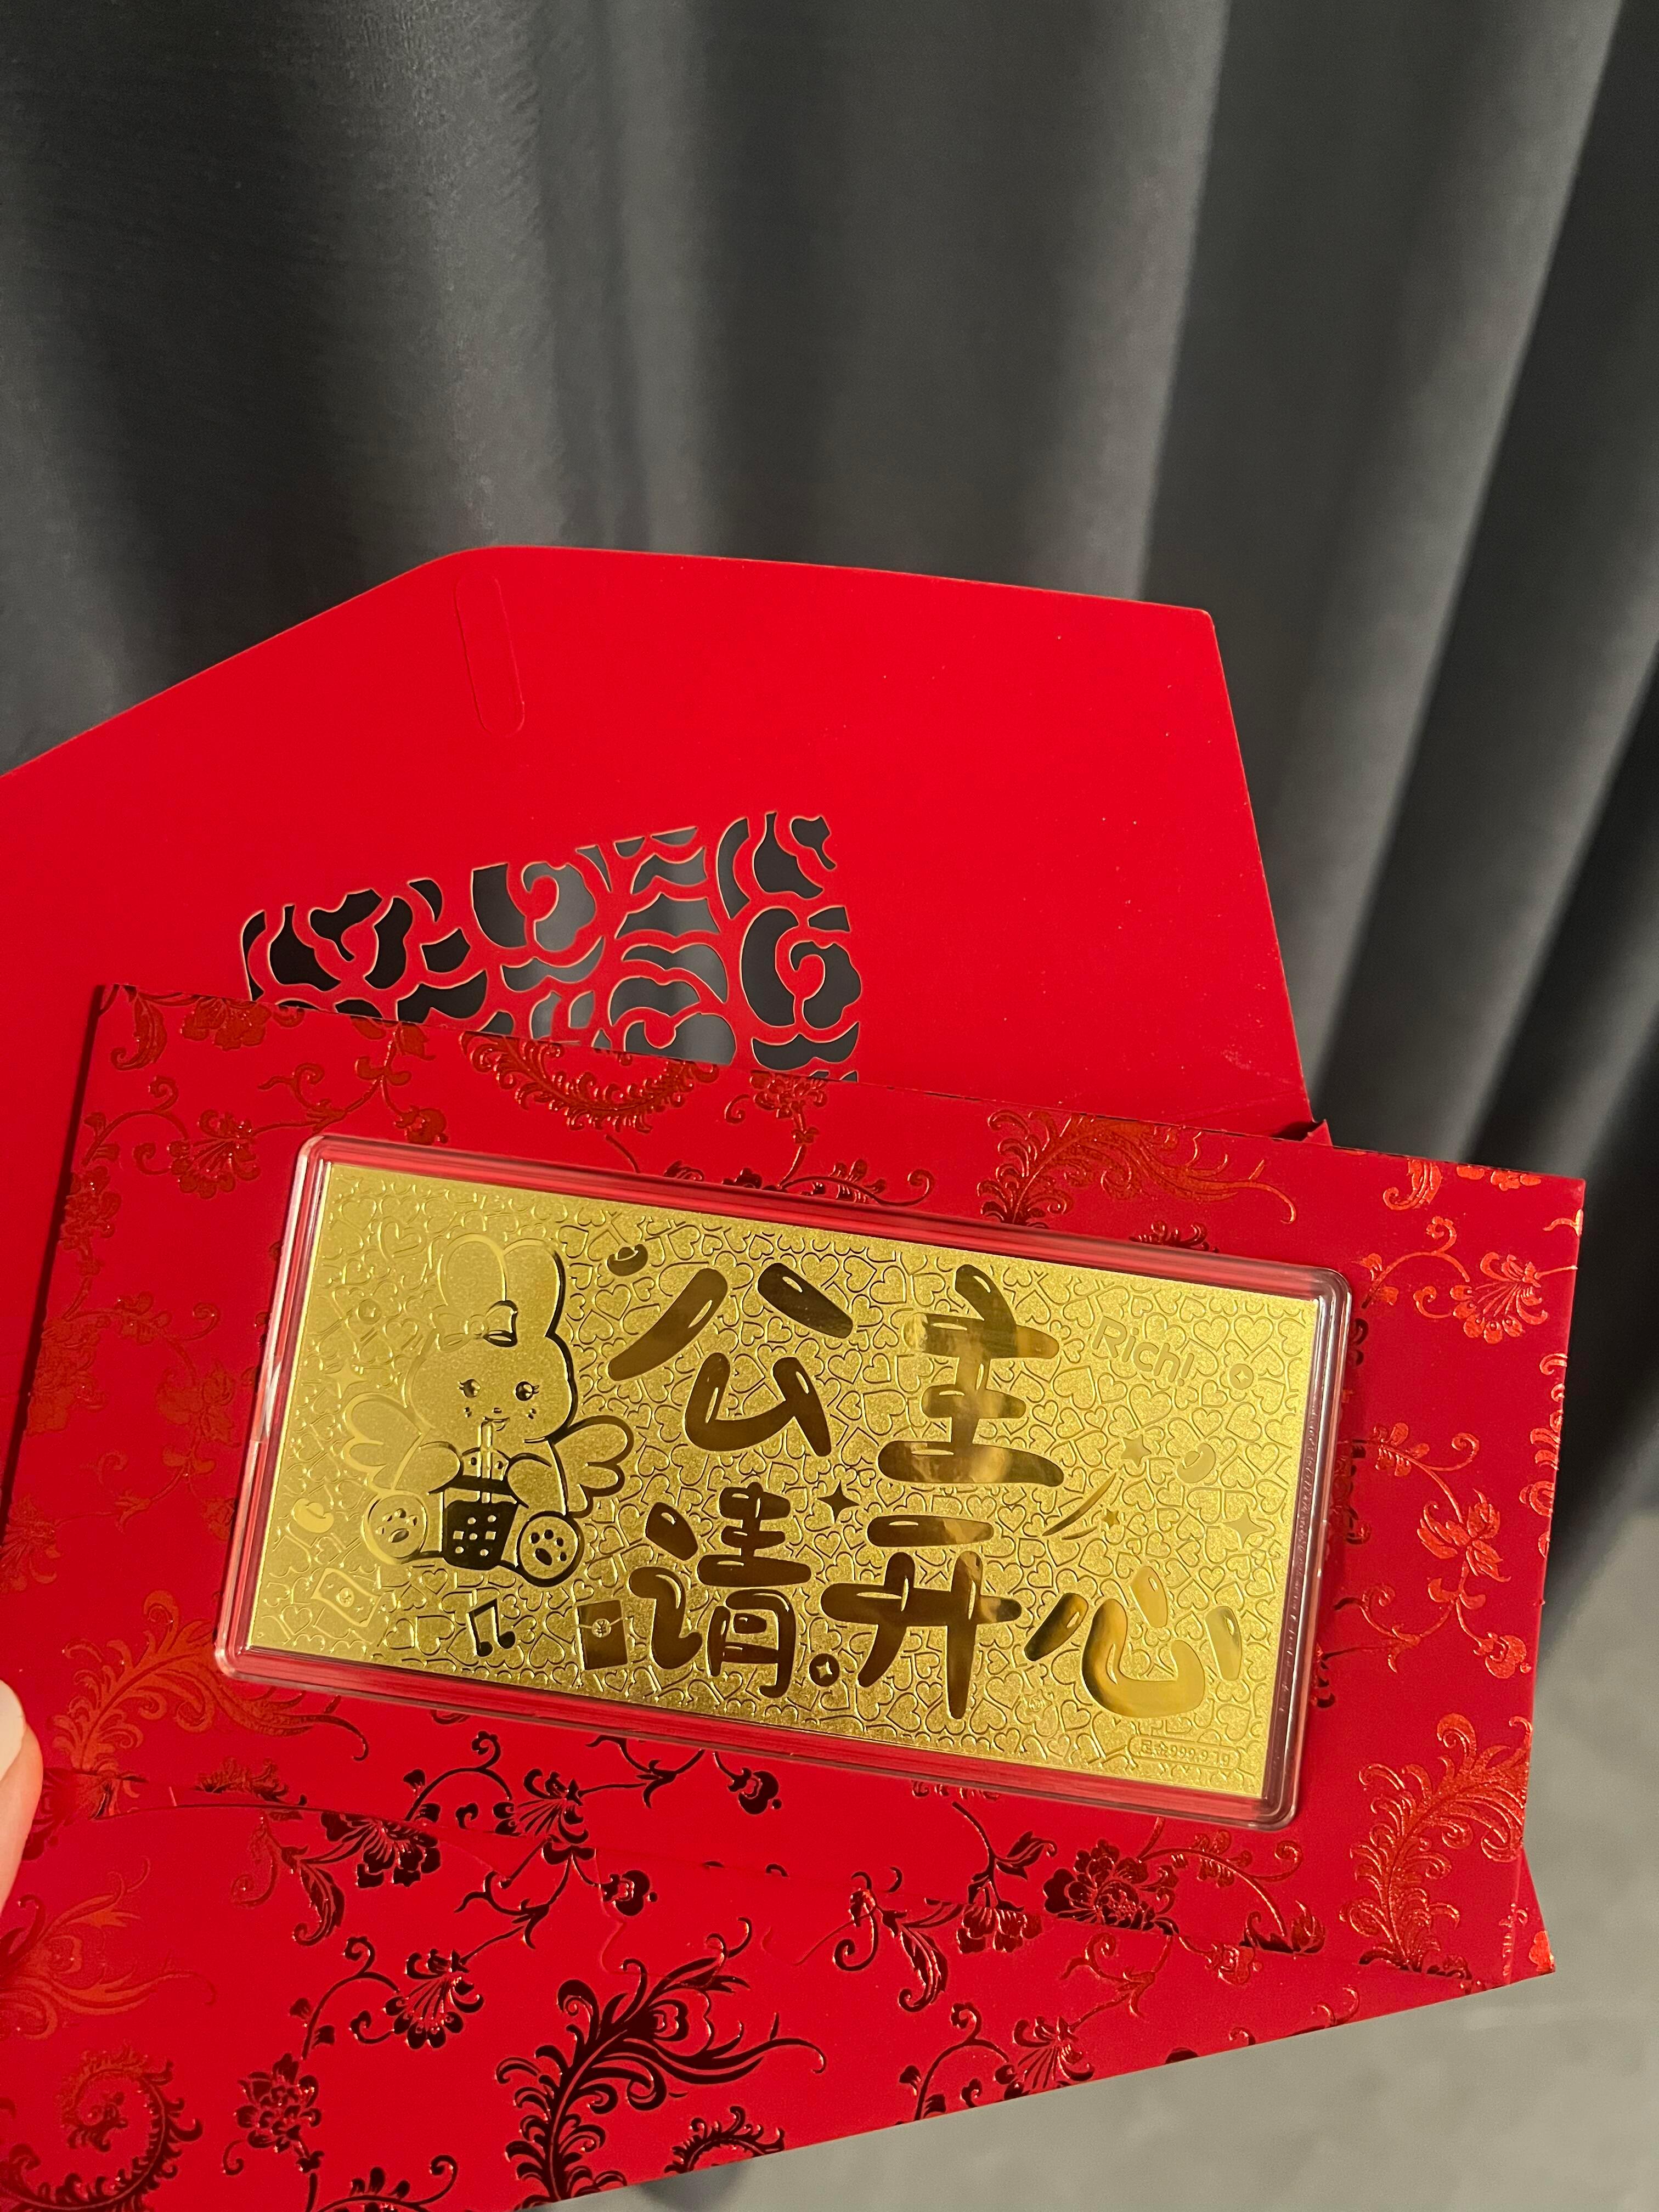 公主
Rich!
请开心
足金999.9 1g